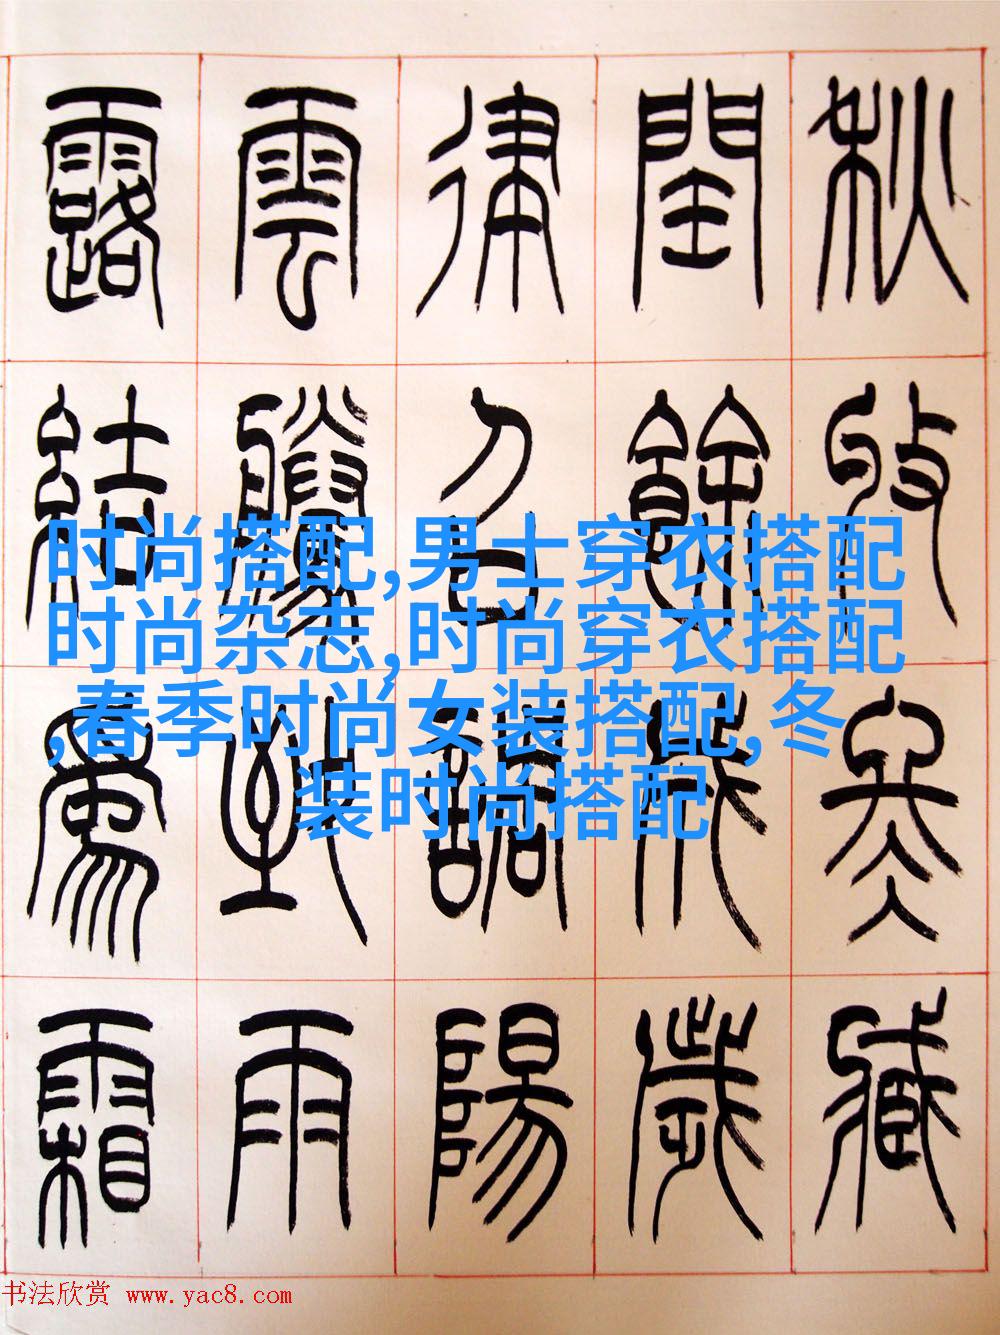 秋收冬藏
閏餘成歲
律召調陽
雲騰致雨
露結爲霜
时尚搭配,男士穿衣搭配
时尚杂志,时尚穿衣搭配
,春季时尚女装搭配,冬
装时尚搭配
书法欣赏 www.yac8.com